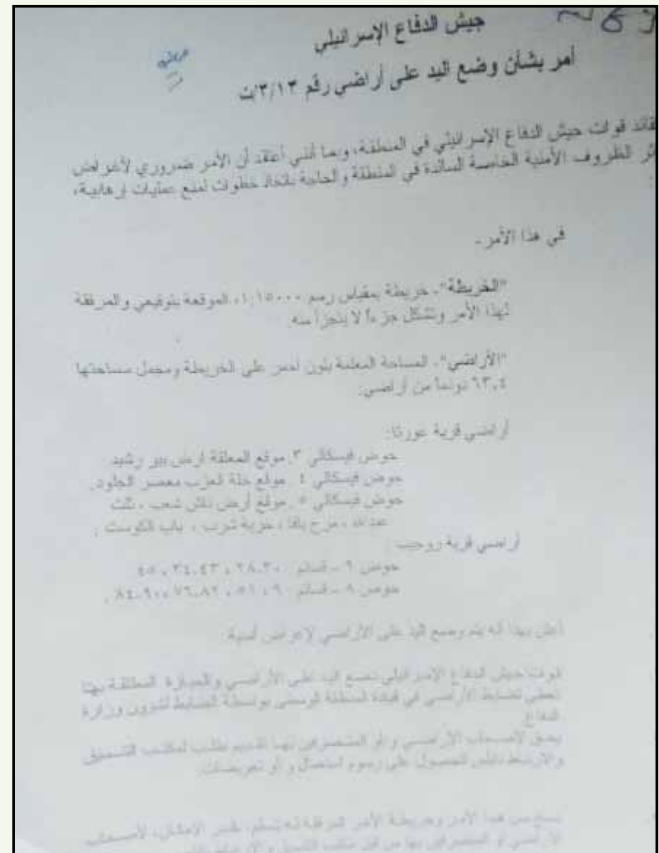 جيش الدفاع الإسرائيلي
أمر بشأن وضع اليد على أراضي رقم ٣/١٣/ت
قائد قوات جيش الدفاع الإسرائيلي في المنطقة، وبما أنني أعتقد أن الأمر ضروري لأغراض
الظروف الأمنية الخاصة السائدة في المنطقة والحاجة باتخاذ خطوات لمنع عمليات إرهابية،
في هذا الأمر-
"الخريطة"- خريطة بمقياس رسم ١:١٥٠٠٠، الموقعة بتوقيعي والمرفقة
لهذا الأمر وتشكل جزءاً لا يتجزأ منه.
"الأراضي"- المساحة المعلمة بلون أحمر على الخريطة ومجمل مساحتها
٦٣,٤ دونماً من أراضي:
أراضي قرية عورتا:
حوض فيسكالي ٣ موقع المعلقة ارض بير رشيد.
حوض فيسكالي ٤ موقع خلة العزب معصر الجلود.
حوض فيسكالي ٥ موقع أرض نقش شعب ،
مرج يافا ، خربة شرب ، باب الكوست .
أراضي قرية روجيب
حوض ٦ – قسائم ٢٨،٣٠ ، ٣٤،٤٣ ، ٤٥
حوض ٨ – قسائم ٥١ ، ٧٦،٨٢ ، ٨٤،٩٠
أعلن بهذا أنه يتم وضع اليد على الأراضي لأغراض أمنية.
قوات جيش الدفاع الإسرائيلي تضع اليد على الأراضي والحيازة المطلقة بها
تعطى لضابط الأراضي في قيادة المنطقة الوسطى بواسطة الضابط لشؤون وزارة
الدفاع.
يحق لأصحاب الأراضي و/أو المتصرفين بها تقديم طلب لمكتب التنسيق
والارتباط نابلس الحصول على رسوم استعمال و/أو تعويضات.
نسخ من هذا الأمر وخريطة الأمر المرفقة له تسلم، بقدر الإمكان، لأصحاب
الأراضي أو المتصرفين بها من قبل مكتب التنسيق والارتباط